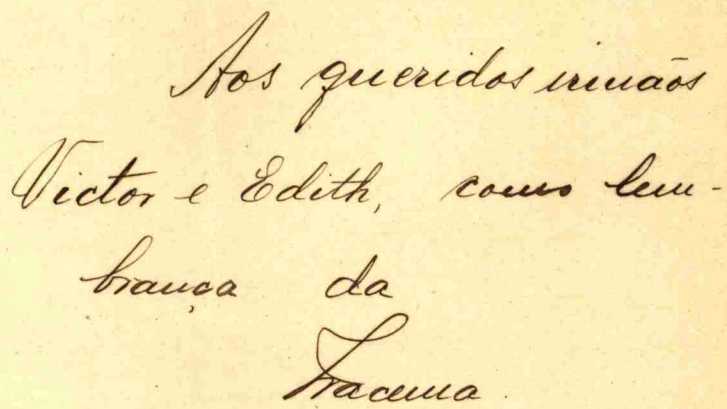 Aos queridos irmãos
Victor e Edith, como lem-
brança da
Iracema.